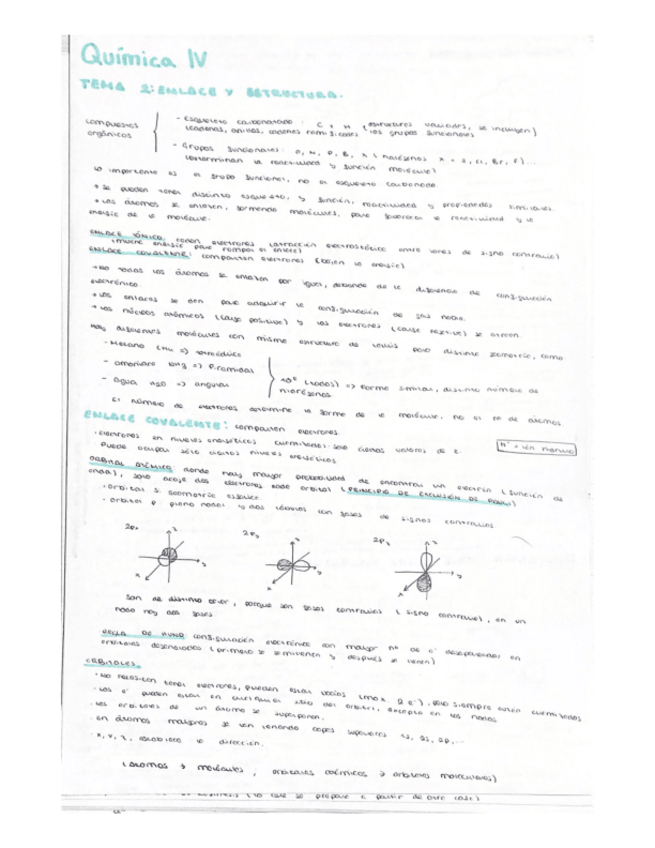 Química IV
TEMA 2: ENLACE Y ESTRUCTURA.
compuestos
orgánicos
- Esqueleto carbonatado: C + H (estructuras variadas, se incluyen)
(cadenas, anillos, cadenas ramificadas los grupos funcionales
- Grupos funcionales: O, N, P, B, X (halógenos X = I, Cl, Br, F)...
(determinan la reactividad y función molécula)
lo importante es el grupo funcional, no el esqueleto carbonado
se pueden tener distinto esqueleto, y función, reactividad y propiedades similares.
los átomos se enlazan, formando moléculas, para favorecer la reactividad y la
energía de la molécula.
ENLACE IÓNICO: electrones (atracción electrostática entre iones de signo contrario)
(mucha energía para romper el enlace)
ENLACE COVALENTE: comparten electrones (bajan la energía)
no todos los átomos se enlazan por igual, depende de la diferencia de configuración
electrónica
los enlaces se dan para adquirir la configuración de gas noble.
los núcleos atómicos (carga positiva) y los electrones (carga negativa) se atraen.
Hay diferentes moléculas con misma estructura de Lewis pero distinta geometría, como
- Metano CH4 => tetraédrica
- amoniaco => Piramidal
- Agua H2O => angular
10e- (todos) => forma similar, distinto número de
hidrógenos
El número de electrones determina la forma de la molécula, no el nº de átomos.
ENLACE COVALENTE: comparten electrones.
· electrones en niveles energéticos cuantizados: solo ciertos valores de E.
· puede ocupar sólo ciertos niveles energéticos
H+ = ión
ORBITAL ATÓMICO donde hay mayor probabilidad de encontrar un electrón (función de
onda), solo acoge dos electrones cada orbital (PRINCIPIO DE EXCLUSIÓN DE PAULI)
· orbital s: geometría esférica
· orbital p: plano nodal y dos lóbulos con fases de signos contrarios
2px
2py
2pz
z
y
x
z
y
x
z
y
x
Son de distinto color, porque son fases contrarias (signo contrario), en un
nodo hay dos fases
REGLA DE HUND configuración electrónica con mayor nº de e- desapareados en
orbitales degenerados (primero se semillenan y después se llenan)
ORBITALES.
· No necesitan tener electrones, pueden estar vacíos (max. 2 e-), pero siempre están cuantizados
· los e- pueden estar en cualquier sitio del orbital, excepto en los nodos
· los orbitales de un átomo se superponen.
· en átomos mayores se van llenando capas superiores 1s, 2s, 2p,...
· x, y, z, establece la dirección.
(átomos → moléculas, orbitales atómicos → orbitales moleculares)